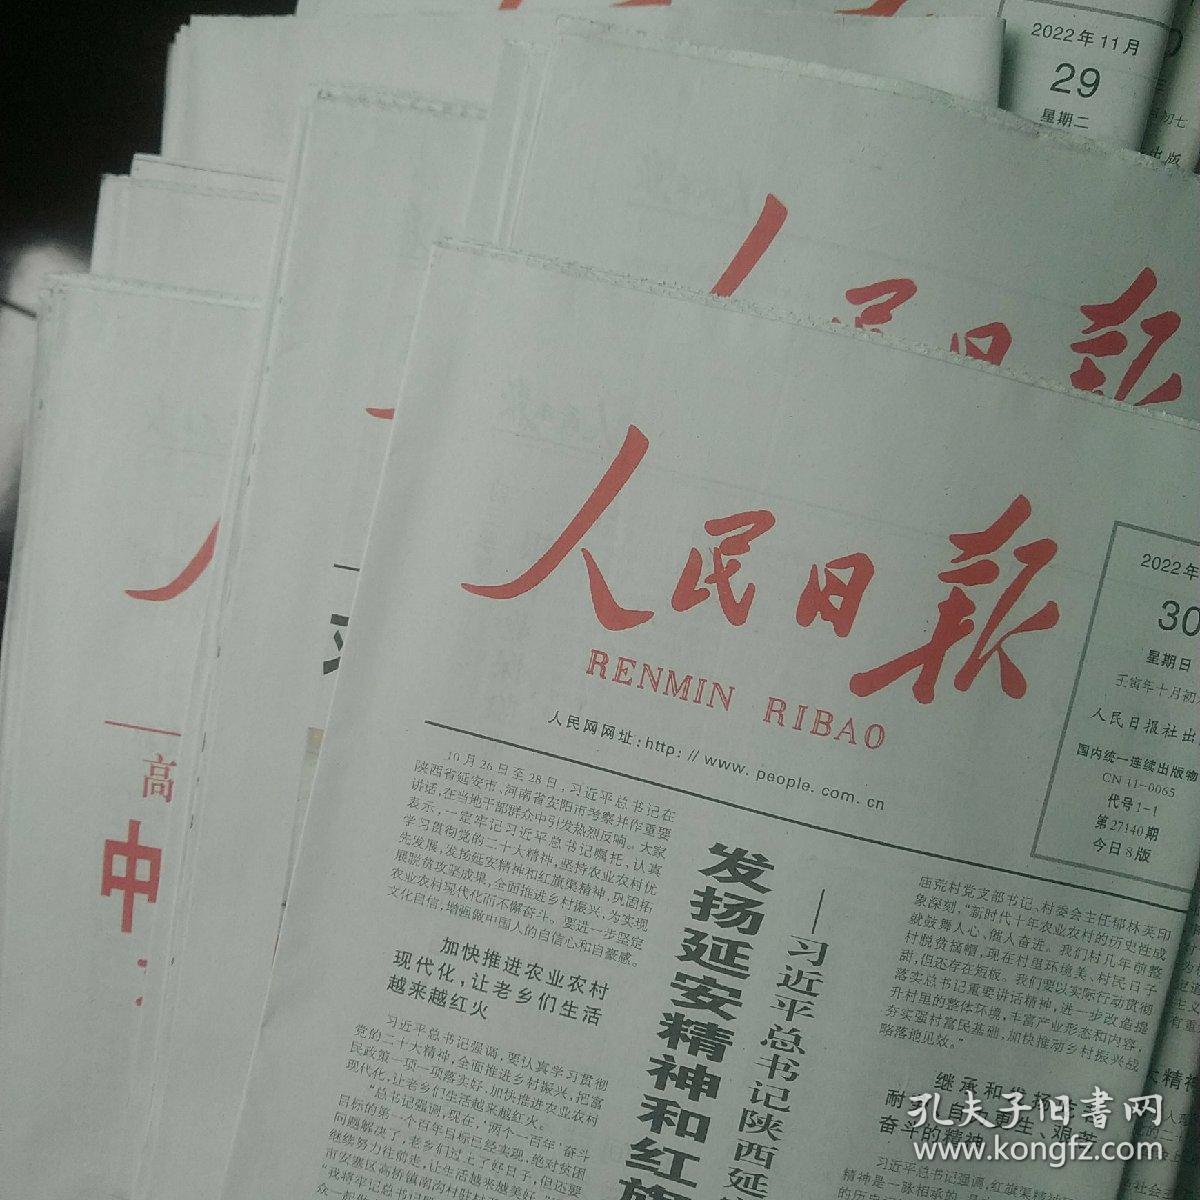 2022年11月
29
星期二
人民日报
人民日报
RENMIN RIBAO
人民网网址:http://www.people.com.cn
2022年
30
星期日
壬寅年十月初
人民日报社出
国内统一连续出版物
CN 11-0065
代号1-1
第27140期
今日8版
10月26日至28日，习近平总书记在
陕西省延安市、河南省安阳市考察并作重要
讲话，在当地干部群众中引发热烈反响。大家
表示，一定牢记习近平总书记嘱托，认真
学习贯彻党的二十大精神，坚持农业农村优
先发展，发扬延安精神和红旗渠精神，巩固拓
展脱贫攻坚成果，全面推进乡村振兴，为实现
农业农村现代化而不懈奋斗。要进一步坚定
文化自信，增强做中国人的自信心和自豪感。
加快推进农业农村
现代化，让老乡们生活
越来越红火
习近平总书记强调，要认真学习贯彻
党的二十大精神，全面推进乡村振兴，把富
民政策一项一项落实好，加快推进农业农村
现代化，让老乡们生活越来越红火。
“总书记强调，现在，‘两个一百年’奋斗
目标的第一个百年目标已经实现，绝对贫困
问题解决了，老乡们过上了好日子，但还要
继续努力往前走，让生活越来越美好。
市安塞区高桥镇南沟村
发扬延安精神和红旗
——习近平总书记陕西延
庙荒村党支部书记、村委会主任郁林英印
象深刻，“新时代十年农业农村的历史性成
就鼓舞人心、催人奋进。我们村几年前整
村脱贫摘帽，现在村里环境美，村民日子
甜，但还存在短板。我们要以实际行动贯彻
落实总书记重要讲话精神，进一步改造提
升村里的整体环境，丰富产业形态和内容，
夯实强村富民基础，加快推动乡村振兴战
略落地见效。”
继承和发扬吃苦
耐劳、自力更生、艰苦
奋斗的精神
习近平总书记强调，红旗渠精神
精神是一脉相承的
高
中
孔夫子旧书网
www.kongfz.com